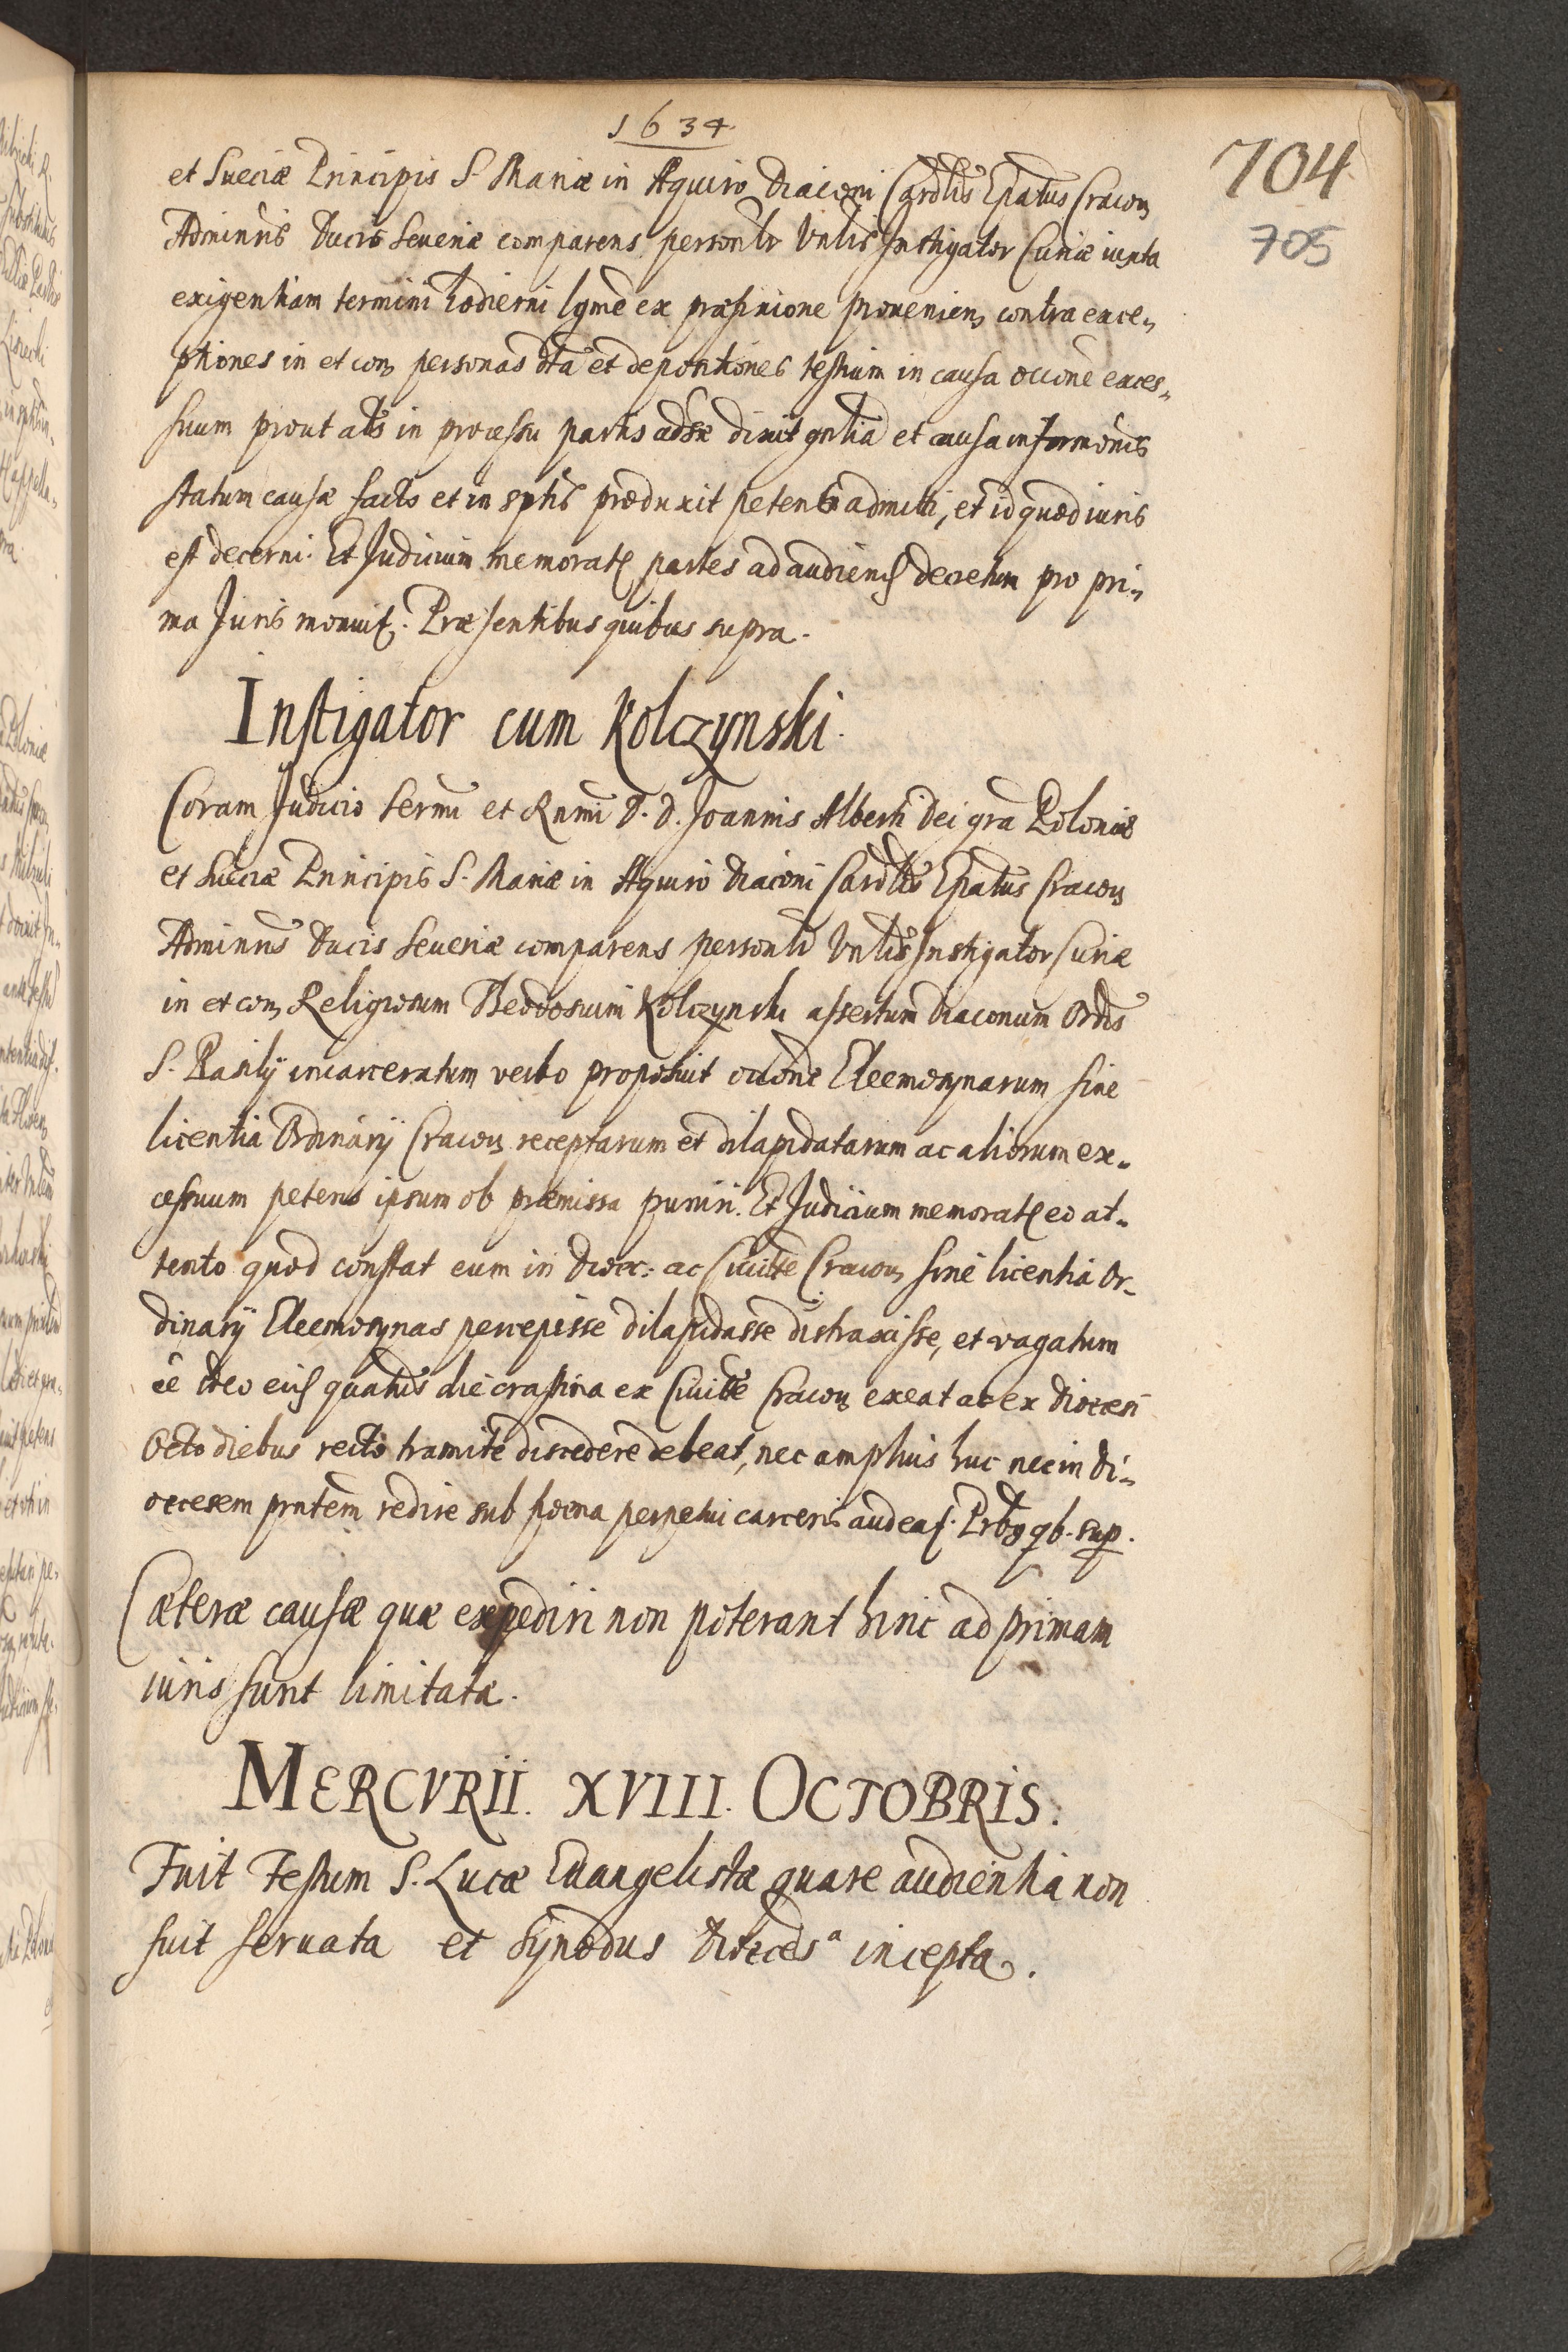 1634.
704
705
et Sueciæ Principis S. Mariæ in Aquiro Diaconi Cardlis Epatus Cracou
Adminris Ducis Seueriæ comparens personlr Vnlis Instigator Curiæ iuxta
exigentiam termini hodierni lgme ex præfixione proueniens contra exce„
ptiones in et con personas dta et depositiones testium in causa occone exces„
suum prout als in processu partis adsæ dixit gnlia et causa informonis
statum causæ facto et in sptis produxit petens admitti, et id quod iuris
est decerni. Et Judicium memorat partes ad audiend decretum pro pri„
ma Juris monuit. Præsentibus quibus supra.
Instigator cum Kolczynski.
Coram Judicio Sermi et Rnmi D. D. Joannis Alberti Dei gra Poloniæ
et Sueciæ Principis S. Mariæ in Aquiro Diaconi Cardlis Epatus Cracou
Adminris Ducis Seueriæ comparens personlr Vnlis Instigator Curiæ
in et con Religiosum Theodosium Kolczynski assertum Diaconum Ordis
S. Basilij incarceratum verbo proposuit occone Eleemosynarum sine
licentia Ordinarij Cracou receptarum et dilapidatarum ac aliorum ex„
cessuum petens ipsum ob præmissa puniri. Et Judicium memorat eo at„
tento quod constat eum in Dioec: ac Ciuitte Cracou sine licentia Or„
dinarij Eleemosynas percepisse dilapidasse distraxisse, et vagatum
ee ideo eid quatus die crastina ex Ciuitte Cracou exeat ac ex Dioecesi
Octo diebus recto tramite discedere debeat, nec amplius huc nec in Di„
oecesem pntem redire sub poena perpetui carceris audeat. Prbg qb. sup.
Cæteræ causæ quæ expediri non poterant hinc ad primam
iuris sunt limitatæ.
MERCVRII. XVIII. OCTOBRIS.
Fuit Festum S. Lucæ Euangelistæ quare audientia non
fuit seruata et Synodus Dioeces^a incepta.